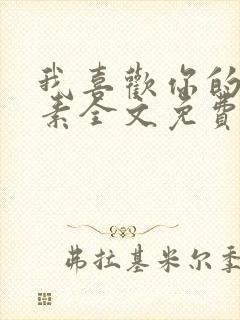 我喜歡你的
素全文免費
弗拉基米尔季